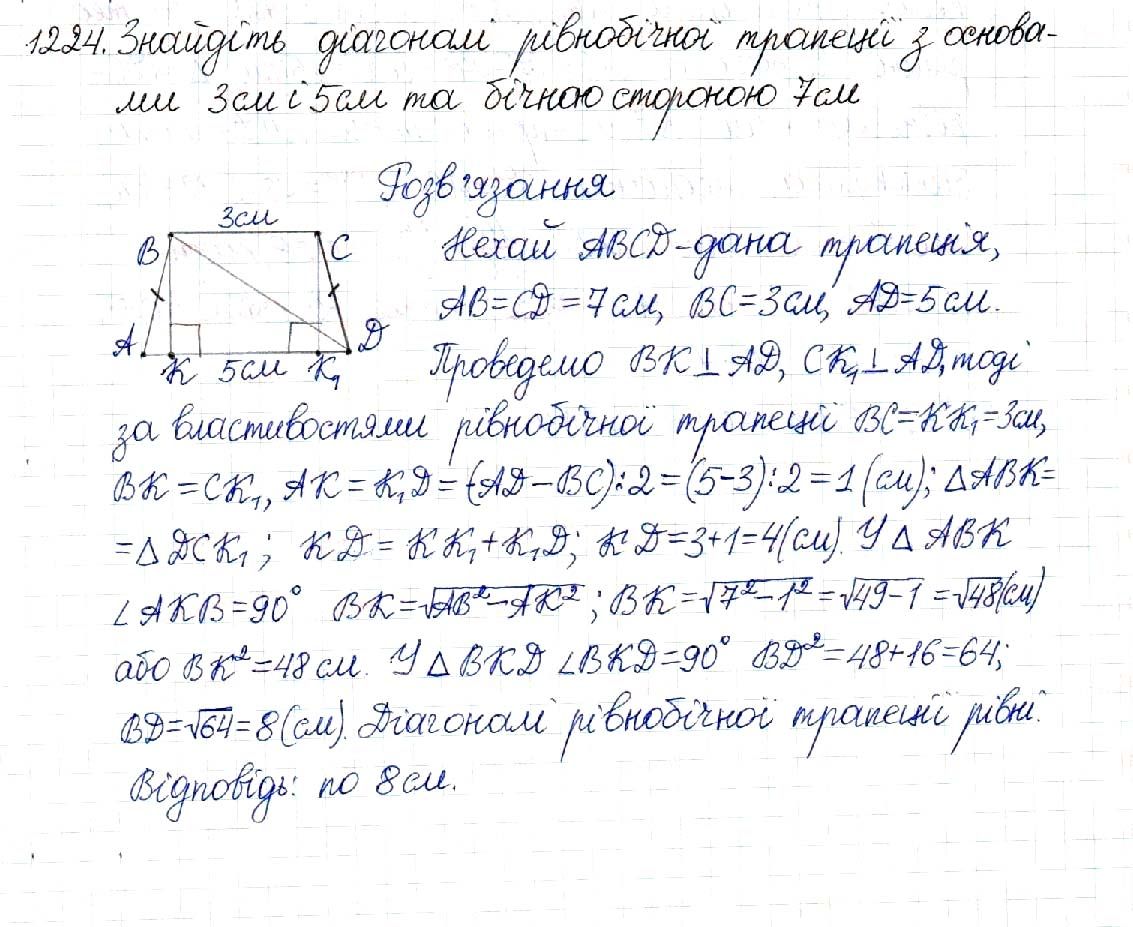 1224. Знайдіть діагоналі рівнобічної трапеції з основа-
ми 3см і 5см та бічною стороною 7см
Розв'язання
3см
B
C
A
D
K
5см
K₁
Нехай ABCD-дана трапеція,
AB=CD=7см, BC=3см, AD=5см.
Проведемо BK⊥AD, CK₁⊥AD, тоді
за властивостями рівнобічної трапеції BC=KK₁=3см,
BK=CK₁, AK=K₁D=(AD-BC):2=(5-3):2=1(см); △ABK=
=△DCK₁; KD=KK₁+K₁D; KD=3+1=4(см). У △ABK
∠AKB=90° BK=√AB²-AK²; BK=√7²-1²=√49-1=√48(см)
або BK²=48см. У △BKD ∠BKD=90° BD²=48+16=64;
BD=√64=8(см). Діагоналі рівнобічної трапеції рівні.
Відповідь: по 8см.